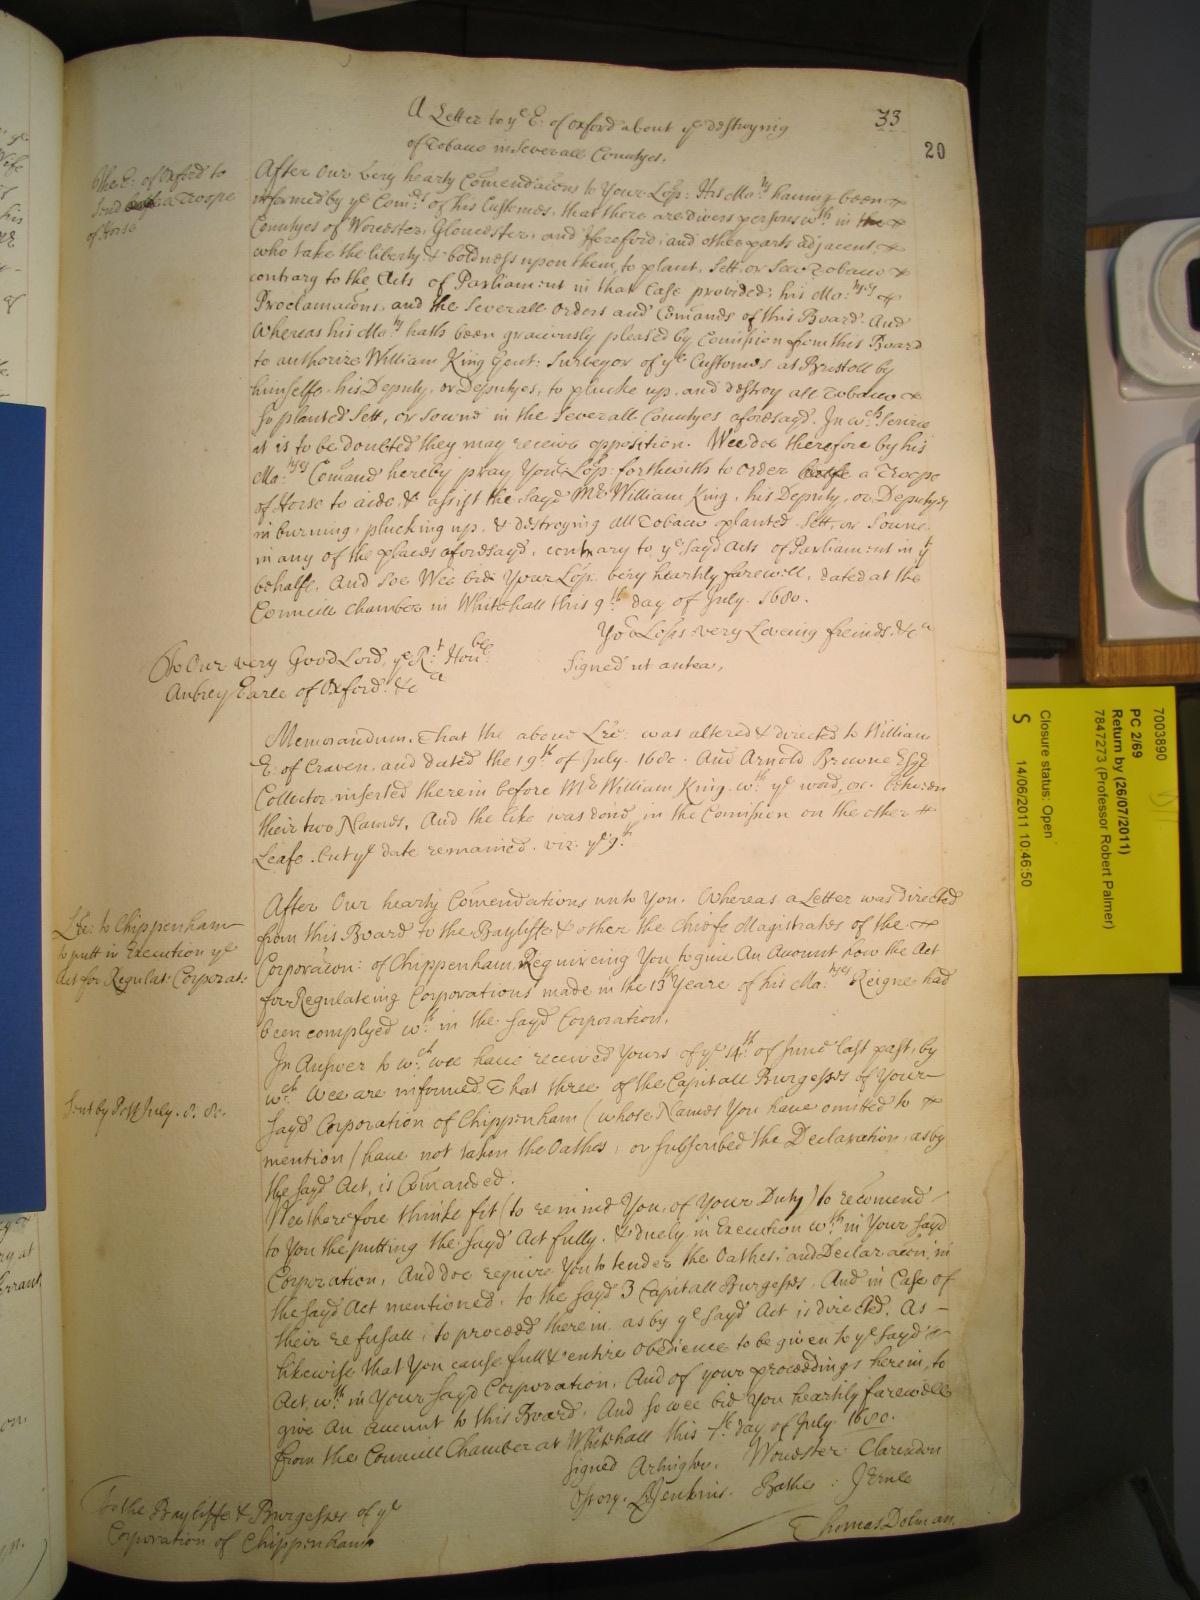 33
20
A Letter to ye E: of Oxford about ye destroying
of Tobacco in Severall Countyes.
The E: of Oxford to
send a Troope
of Horse
After Our very hearty Comendacons to Your Lõp: His Ma:ty having been
informed by ye Com:rs of his Customes, that there are divers persons wth in the
Countyes of Worcester, Gloucester, and Hereford, and other parts adjacent,
who take the liberty & boldness upon them, to plant, Sett, or Sow Tobacco
contrary to the Acts of Parliament in that Case provided; his Ma:tys
Proclamacons, and the Severall Orders and Comands of this Board. And
Whereas his Ma:ty hath been graciously pleased by Comission from this Board
to authorize William King Gent: Surveyor of ye Customes at Bristoll by
himselfe, his Deputy, or Deputyes, to plucke up, and destroy all Tobacco
so planted Sett, or Sowne in the Severall Countyes aforesayd. In wch: Service
it is to be doubted they may receive opposition. Wee doe therefore by his
Ma:tyes Comand hereby pray Your Lõp: forthwith to order halfe a Troope
of Horse to aide, & assist the Sayd Mr: William King, his Deputy, or Deputys
in burning, plucking up, & destroying all Tobacco planted Sett, or Sowne
in any of the places aforesayd, contrary to ye Sayd Acts of Parliament in yt
behalfe. And soe Wee bid Your Lõp: very heartily farewell, dated at the
Councill Chamber in Whitehall this 9th: day of July. 1680.
Yor Lõps: very Loveing freinds. &ca
To Our very Good Lord, ye Rt: Honble:
Signed ut antea,
Aubrey Earle of Oxford. &ca
Memorandum. That the above Lre: was altered & directed to William
E: of Craven, and dated the 19th of July. 1680. And Arnold Browne Esqr
Collector inserted therein before Mr: William King. wth: ye word, or. between
their two Names, And the like was done in the Comission on the other
Leafe. but ye date remained. viz: ye 9th
Lre: to Chippenham
to putt in Execution ye
Act for Regulat: Corporat:
After Our hearty Comendations unto You. Whereas a Letter was directed
from this Board to the Bayliffe & other the Chiefe Magistrates of the
Corporacon: of Chippenham, Requireing You to give An Account how the Act
for Regulateing Corporations made in the 13th Yeare of his Ma:tyes Reigne had
been complyed wth: in the Sayd Corporation.
In Answer to wch: wee have received Yours of ye 14th: of June last past, by
wch: Wee are informed That three of the Capitall Burgesses of Your
Sent by Post July. 8. 80.
Sayd Corporation of Chippenham (whose Names You have omitted to
mention) have not taken the Oathes, or subscribed the Declaration, as by
the Sayd Act, is Comanded.
Wee therefore thinke fit (to remind You, of Your Duty) to recomend
to You the putting the Sayd Act fully, & duely in Execution wth: in Your Sayd
Corporation, And doe require You to tender the Oathes, and Declaracon, in
the Sayd Act mentioned, to the Sayd 3 Capitall Burgesses. And in Case of
their refusall, to proceed therein, as by ye Sayd Act is directed. As
likewise that You cause full & entire Obedience to be given to ye Sayd
Act, wth: in Your Sayd Corporation. And of your proceedings herein, to
give An account to this Board. And so wee bid You heartily farewell
from the Councill Chamber at Whitehall this 7th: day of July 1680.
Signed Arlington. Worcester Clarendon
Ossory. L Jenkins. Bathe: J Ernle
Thomas Dolman.
To the Bayliffe & Burgesses of ye
Corporation of Chippenham
7003890
PC 2/69
Return by (26/07/2011)
7847273 (Professor Robert Palmer)
Closure status: Open
S 14/06/2011 10:46:50